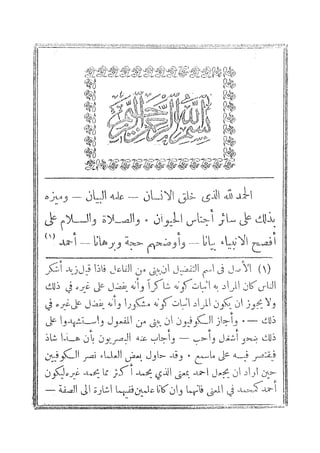 بسم الله الرحمن الرحيم
الحمد لله الذى خلق الانسان – علمه البيان – وميزه
بذلك على سائر أجناس الحيوان • والصلاة والسلام على
أفصح الانبياء بيانا – وأوضحهم حجة وبرهانا – أحمد (١)
(١) الأصل فى اسم التفضيل ان يبنى من الفاعل فاذا قيل زيد أشكر
الناس كان المراد به اثبات كونه شاكراً وأنه يفضل على غيره فى ذلك
ولا يجوز ان يكون المراد اثبات كونه مشكورا وأنه يفضل على غيره فى
ذلك – • وأجاز الكوفيون ان يبنى من المفعول واستشهدوا على
ذلك بنحو أشغل وأحب – وأجاب عنه البصريون بأن هذا شاذ
فيقتصر فيه على ماسمع • وقد حاول بعض العلماء نصر الكوفيين
حين اراد ان يجعل احمد بمعنى الذي يحمد أكثر مما يحمد غيره ليكون
أحمد كمحمد في المعنى فانهما وان كانا علمين ففيهما اشارة الى الصفة –